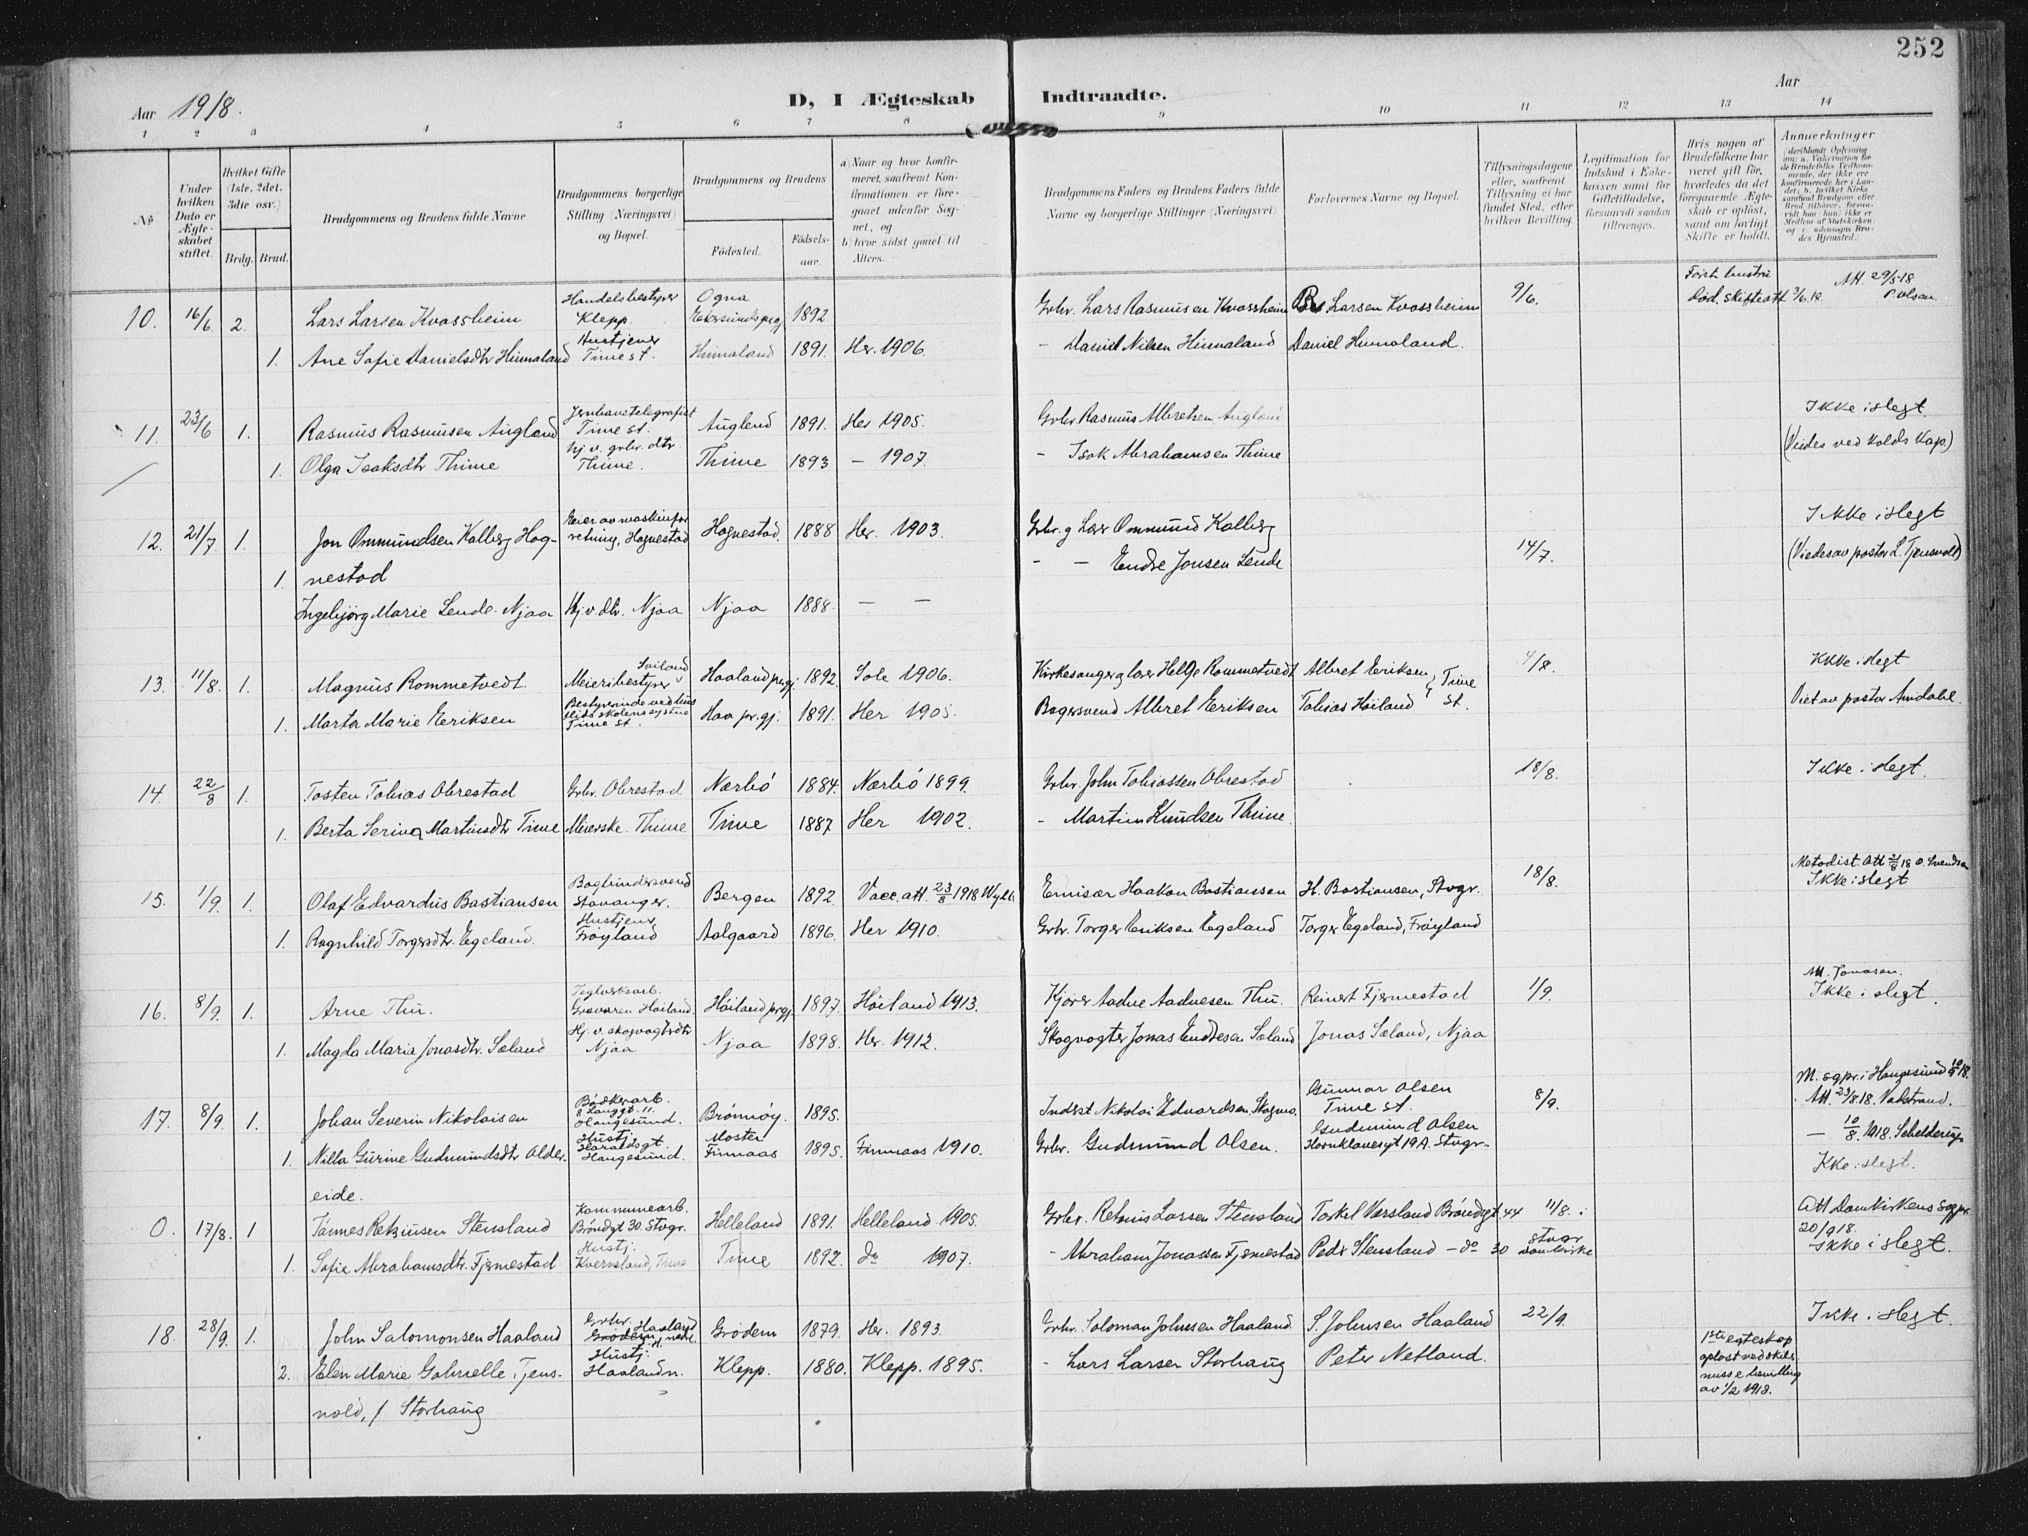 252
Aar 1918.
D, I Ægteskab Indtraadte.
Aar
1 2 3 4 5 6 7 8 9 10 11 12 13 14
No
Under hvilken Dato er Ægteskabet stiftet.
Hvilket Gifte (1ste, 2det, 3die osv.)
Brdg. Brud.
Brudgommens og Brudens fulde Navne
Brudgommens borgerlige Stilling (Næringsvei) og Bopæl.
Brudgommens og Brudens
Fødested.
Fødselsaar.
a) Naar og hvor konfirmeret, saafremt Konfirmationen er foregaaet udenfor Sognet, og
b) hvor sidst gaaet til Alters.
Brudgommens Faders og Brudens Faders fulde Navne og borgerlige Stillinger (Næringsvei)
Forlovernes Navne og Bopæl.
Tillysningsdagene eller, saafremt Tillysning ei har fundet Sted, efter hvilken Bevilling
Legitimation for Indskud i Enkekassen samt for Giftetilladelse, forsaavidt saadan tiltrænges.
Hvis nogen af Brudefolkene har været gift før, hvorledes da det foregaaende Ægteskab er opløst, samt om lovligt Skifte er holdt.
Anmerkninger
10. 16/6 2. Lars Larsen Kvassheim Handelsbestyrer Klepp. Ogna Ekersunds prgj 1892 Grbr. Lars Rasmusen Kvassheim Larsen Kvassheim 9/6. Først hustru død, skifteatt 3/6.18 Att 29/5 18 P. Olsen
1. Ane Sofie Danielsdtr Hinnaland Hustjener Time st. Hinnaland 1891. Her. 1906. - Daniel Nilsen Hinnaland Daniel Hinnaland.
11. 23/6 1. Rasmus Rasmusen Auglend Jernbanetelegrafist Time st. Auglend 1891. Her 1905. Grbr Rasmus Albretsen Auglend Ikke i slegt.
1. Olga Isaksdtr Thime hj. v. grbr. dtr. Thime. Thime 1893 - 1907. - Isak Abrahamsen Thime (Viedes ved Kolds Kap)
12. 21/7 1. Jon Ommundsen Kalberg Hog- Eier av maskinforretning, Hognestad Hognestad. 1888 Her. 1903. Grbr. g Lær Ommund Kalberg 14/7. Ikke i slegt
1. nestad - - Endre Jonsen Lende (Viedes av pastor L. Tjensvold)
Ingebjørg Marie Lende Njaa Hj. v dtr. Njaa Njaa 1888. - -
13. 11/8. 1. Magnus Rommetvedt Meieribestyrer Sviland Haaland prgj. 1892. Sole 1906. Kirkesanger g lærer Helge Rommetvedt Albret Eriksen 4/8. Ikke i slegt
1. Marta Marie Eriksen Time st. Haa prgj. 1891. Her 1905. Bagersvend Albret Eriksen Tobias Høiland } Time st. Viet av pastor Amdahl.
14. 22/8 1. Tosten Tobias Obrestad Grbr. Obrestad Nærbö 1884. Nærbö 1899. Grbr John Tobiassen Obrestad 18/8. Ikke i slegt.
1. Berta Serina Martinsdtr Time Meierske. Thime Time 1887 Her 1902. - Martin Knudsen Thime.
15. 1/9. 1. Olaf Edvardus Bastiansen Bogbindersvend Stavanger. Bergen 1892. Vacc. att. 23/8 1918 Emisær Haakon Bastiansen H. Bastiansen, Stvgr. 18/8. Metodist. Att 21/8 18 O. Svendsen Ikke i slegt
1. Ragnhild Torgersdtr. Egeland. Hustjener Frøyland Aalgaard 1896. Her 1910. Grbr. Torger Eriksen Egeland Torger Egeland, Frøyland
16. 8/9. 1. Arne Thu. Teglverksarb. Gravaren Høiland. Höiland prgj. 1897. Höiland 1913. Kjører Aadne Aadnesen Thu. Reinert Fjermestad 1/9. Att. Jonasen. Ikke i slegt.
1. Magda Maria Jonasdtr. Sæland Hj. v. skogvogtrdtr Njaa Njaa 1898. Her. 1912. Skogvogter Jonas Endresen Sæland Jonas Sæland, Njaa
17. 8/9. 1. Johan Severin Nikolaisen Bødkerarb. Haugesund. Brønnøy. 1895. Inderst Nikolai Edvardsen, Gunnar Olsen Time st. 8/9. M. sgpr. i Haugesund 18. Att 23/8.18. Vakstrand.
1. Nilla Gurine Gudmundsdtr Alder- Hustj. Haraldsgt. Haugesund. Moster Finnaas 1895. Finnaas 1910. Grbr. Gudmund Olsen. Gudmund Olsen Hornklovesgt 19A. Stvgr. - 10/8. 1918. Schelderup
eide. Ikke i slegt.
0. 17/8. 1 Tönnes Retsiusen Stensland Kommunearb. Brøndgt 30. Stvgr. Helleland 1891. Helleland. 1905. Grbr. Retsius Larsen Stensland Torkel Versland Brøndgt. 44 11/8. i Att Domkirkens sogpr. 20/9 18.
1. Sofie Abrahamsdtr. Fjermestad Hustj. Kvernaland, Time Time 1892. do 1907. - Abraham Jonassen Fjermestad Peder Stensland - do 30 Stvgr domkirke Ikke i slegt.
18. 28/9. 1. John Salomonsen Haaland Grbr. Haaland Grödem 1879. Her. 1893. Grbr. Saloman Johnsen Haaland S. Johnsen Haaland 22/9. Ikke i slegt.
2. Elen Marie Gabrielle Tjens- Hustj. Haaland n. Klepp. 1880. Klepp. 1895. - Lars Larsen Storhaug Peter Netland. 1ste egteskap opløst ved skilsmisse bevilling av 1/2 1918.
vold, f Storhaug